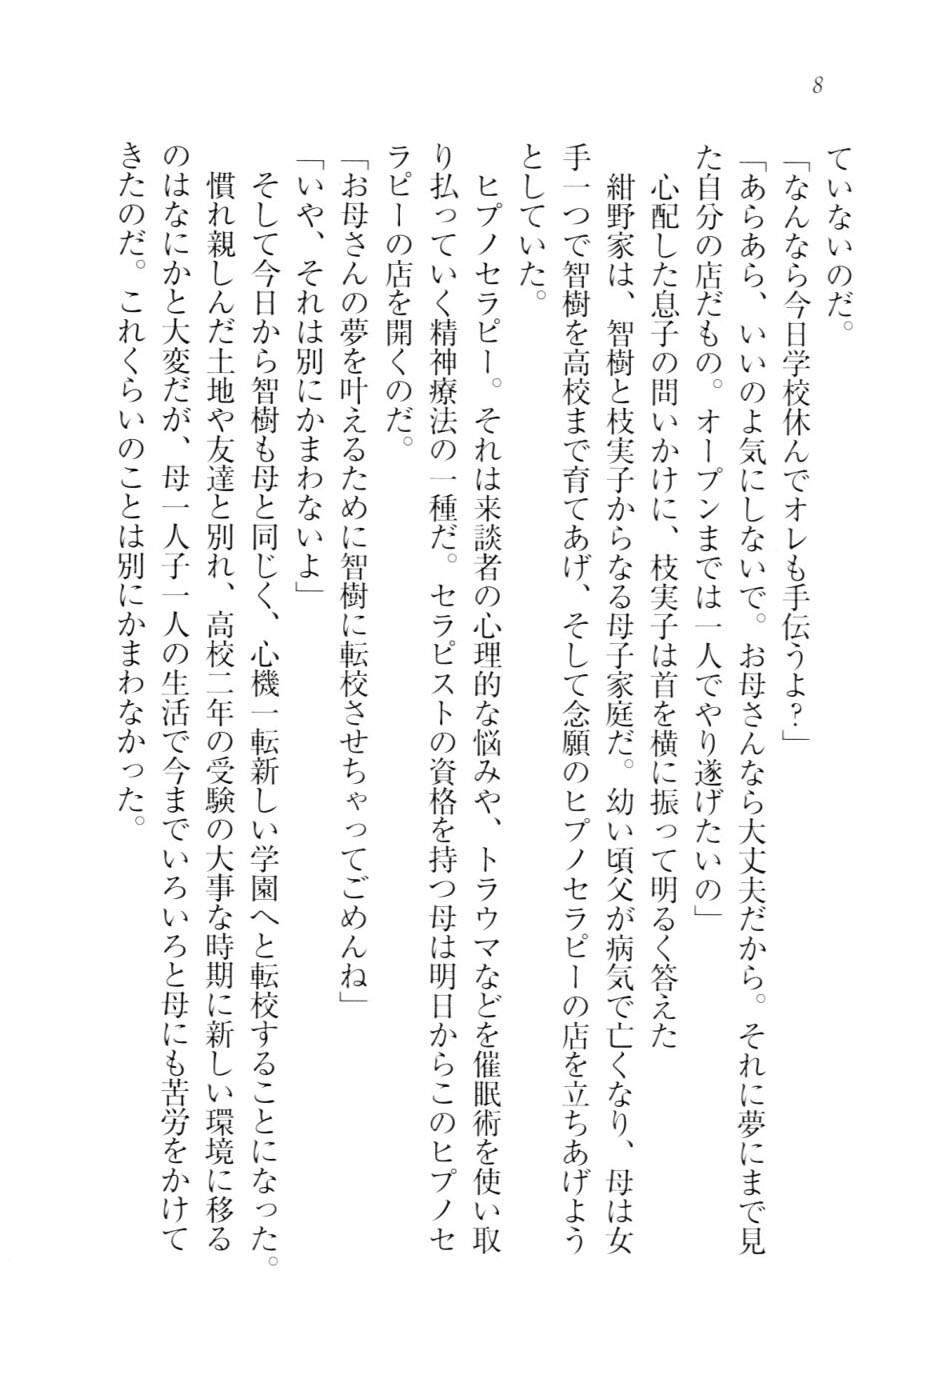 8
ていないのだ。
「なんなら今日学校休んでオレも手伝うよ？」
「あらあら、いいのよ気にしないで。お母さんなら大丈夫だから。それに夢にまで見
た自分の店だもの。オープンまでは一人でやり遂げたいの」
心配した息子の問いかけに、枝実子は首を横に振って明るく答えた
紺野家は、智樹と枝実子からなる母子家庭だ。幼い頃父が病気で亡くなり、母は女
手一つで智樹を高校まで育てあげ、そして念願のヒプノセラピーの店を立ちあげよう
としていた。
ヒプノセラピー。それは来談者の心理的な悩みや、トラウマなどを催眠術を使い取
り払っていく精神療法の一種だ。セラピストの資格を持つ母は明日からこのヒプノセ
ラピーの店を開くのだ。
「お母さんの夢を叶えるために智樹に転校させちゃってごめんね」
「いや、それは別にかまわないよ」
そして今日から智樹も母と同じく、心機一転新しい学園へと転校することになった。
慣れ親しんだ土地や友達と別れ、高校二年の受験の大事な時期に新しい環境に移る
のはなにかと大変だが、母一人子一人の生活で今までいろいろと母にも苦労をかけて
きたのだ。これくらいのことは別にかまわなかった。